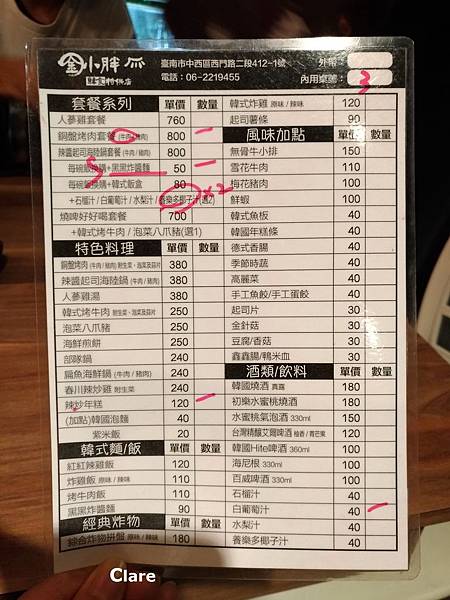 金小胖
韓式特供店
臺南市中西區西門路二段412-1號
電話：06-2219455
外帶：
內用桌號：3
套餐系列 單價 數量
人蔘雞套餐 760
銅盤烤肉套餐 (牛肉/豬肉) 800
辣醬起司海陸鍋套餐 (牛肉/豬肉) 800
每碗飯換購+黑黑炸醬麵 50
每碗飯換購+韓式飯盒 80
+石榴汁/白葡萄汁/水梨汁/養樂多椰子汁(選2) x2
燒啤好好喝套餐 700
+韓式烤牛肉/泡菜八爪豬(選1)
特色料理 單價 數量
銅盤烤肉 (牛肉/豬肉) 附生菜、泡菜及蒜片 380
辣醬起司海陸鍋 (牛肉/豬肉) 380
人蔘雞湯 380
韓式烤牛肉 附生菜、泡菜及蒜片 250
泡菜八爪豬 250
海鮮煎餅 250
部隊鍋 240
扁魚海鮮鍋 (牛肉/豬肉) 240
春川辣炒雞 附生菜 240
辣炒年糕 120
(加點)韓國泡麵 40
紫米飯 20
韓式麵/飯 單價 數量
紅紅辣雞飯 120
炸雞飯 原味/辣味 110
烤牛肉飯 110
黑黑炸醬麵 90
經典炸物 單價 數量
綜合炸物拼盤 原味/辣味 180
韓式炸雞 原味/辣味 120
起司薯條 90
風味加點 單價 數量
無骨牛小排 150
雪花牛肉 110
梅花豬肉 100
鮮蝦 100
韓式魚板 40
韓國年糕條 40
德式香腸 40
季節時蔬 40
高麗菜 40
手工魚餃/手工蛋餃 40
起司片 30
金針菇 30
豆腐/香菇 30
鑫鑫腸/鴨米血 30
酒類/飲料 單價 數量
韓國燒酒 真露 180
初樂水蜜桃燒酒 180
水蜜桃氣泡酒 330ml 150
台灣精釀艾爾啤酒 柚香/青芒蜜 120
韓國Hite啤酒 360ml 100
海尼根 330ml 100
百威啤酒 330ml 100
石榴汁 40
白葡萄汁 40
水梨汁 40
養樂多椰子汁 40
Clare